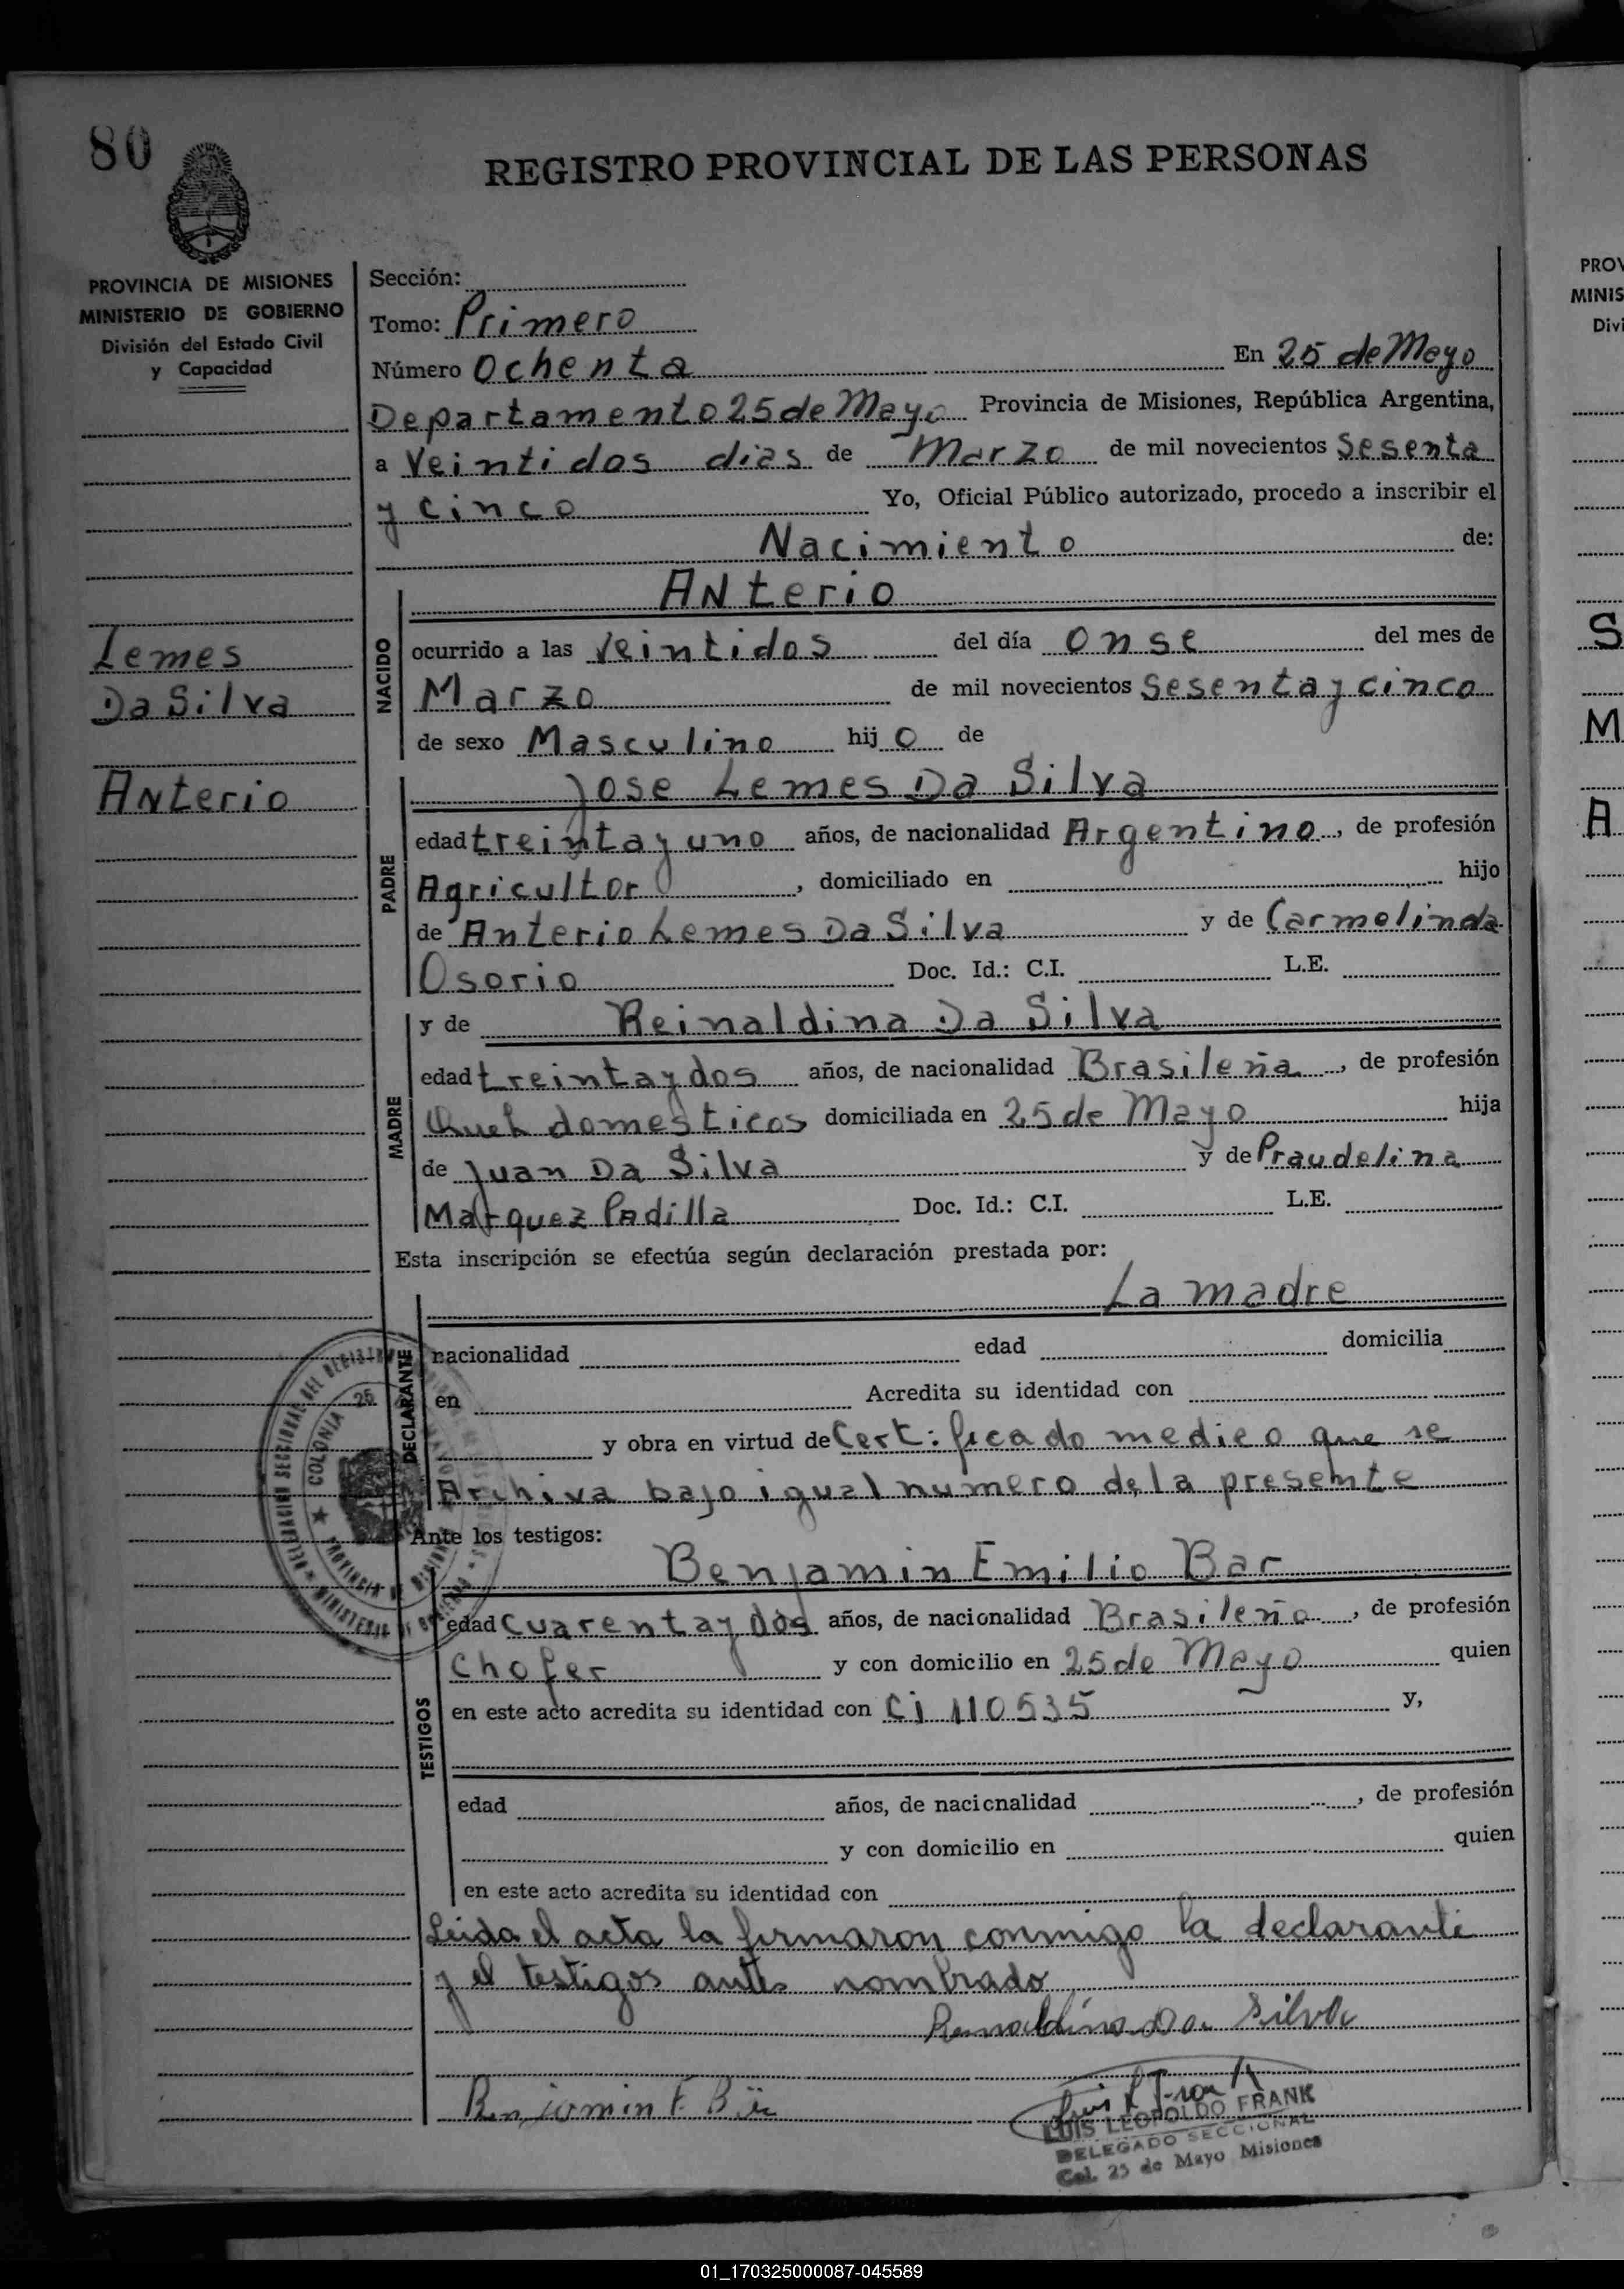 80
REGISTRO PROVINCIAL DE LAS PERSONAS
PROVINCIA DE MISIONES
MINISTERIO DE GOBIERNO
División del Estado Civil
y Capacidad
Lemes
Da Silva
Anterio
Sección:
Tomo: Primero
Número Ochenta En 25 de Mayo
Departamento 25 de Mayo Provincia de Misiones, República Argentina,
a Veintidos dias de Marzo de mil novecientos Sesenta
y cinco Yo, Oficial Público autorizado, procedo a inscribir el
Nacimiento de:
NACIDO
ANterio
ocurrido a las veintidos del día onse del mes de
Marzo de mil novecientos Sesenta y cinco
de sexo Masculino hij o de
PADRE
Jose Lemes Da Silva
edad treinta y uno años, de nacionalidad Argentino, de profesión
Agricultor, domiciliado en hijo
de Anterio Lemes Da Silva y de Carmolinda
Osorio Doc. Id.: C.I. L.E.
MADRE
y de Reinaldina Da Silva
edad treinta y dos años, de nacionalidad Brasileña, de profesión
domesticos domiciliada en 25 de Mayo hija
de Juan Da Silva y de Praudelina
Marquez Padilla Doc. Id.: C.I. L.E.
Esta inscripción se efectúa según declaración prestada por:
DECLARANTE
La madre
nacionalidad edad domicilia
en Acredita su identidad con
y obra en virtud de Certificado medico que se
Archiva bajo igual numero de la presente
COLONIA 25
Ante los testigos:
TESTIGOS
Benjamin Emilio Bar
edad cuarenta y dos años, de nacionalidad Brasileño, de profesión
Chofer y con domicilio en 25 de Mayo quien
en este acto acredita su identidad con Ci 110535 y,
edad años, de nacicnalidad , de profesión
y con domicilio en quien
en este acto acredita su identidad con
Leida el acta la firmaron conmigo la declarante
y el testigos antes nombrado
Reinaldina Da Silva
Benjamin E. Bär
LUIS LEOPOLDO FRANK
DELEGADO SECCIONAL
Col. 25 de Mayo Misiones
PROV
MINIS
Divi
S
M
A
01_170325000087-045589